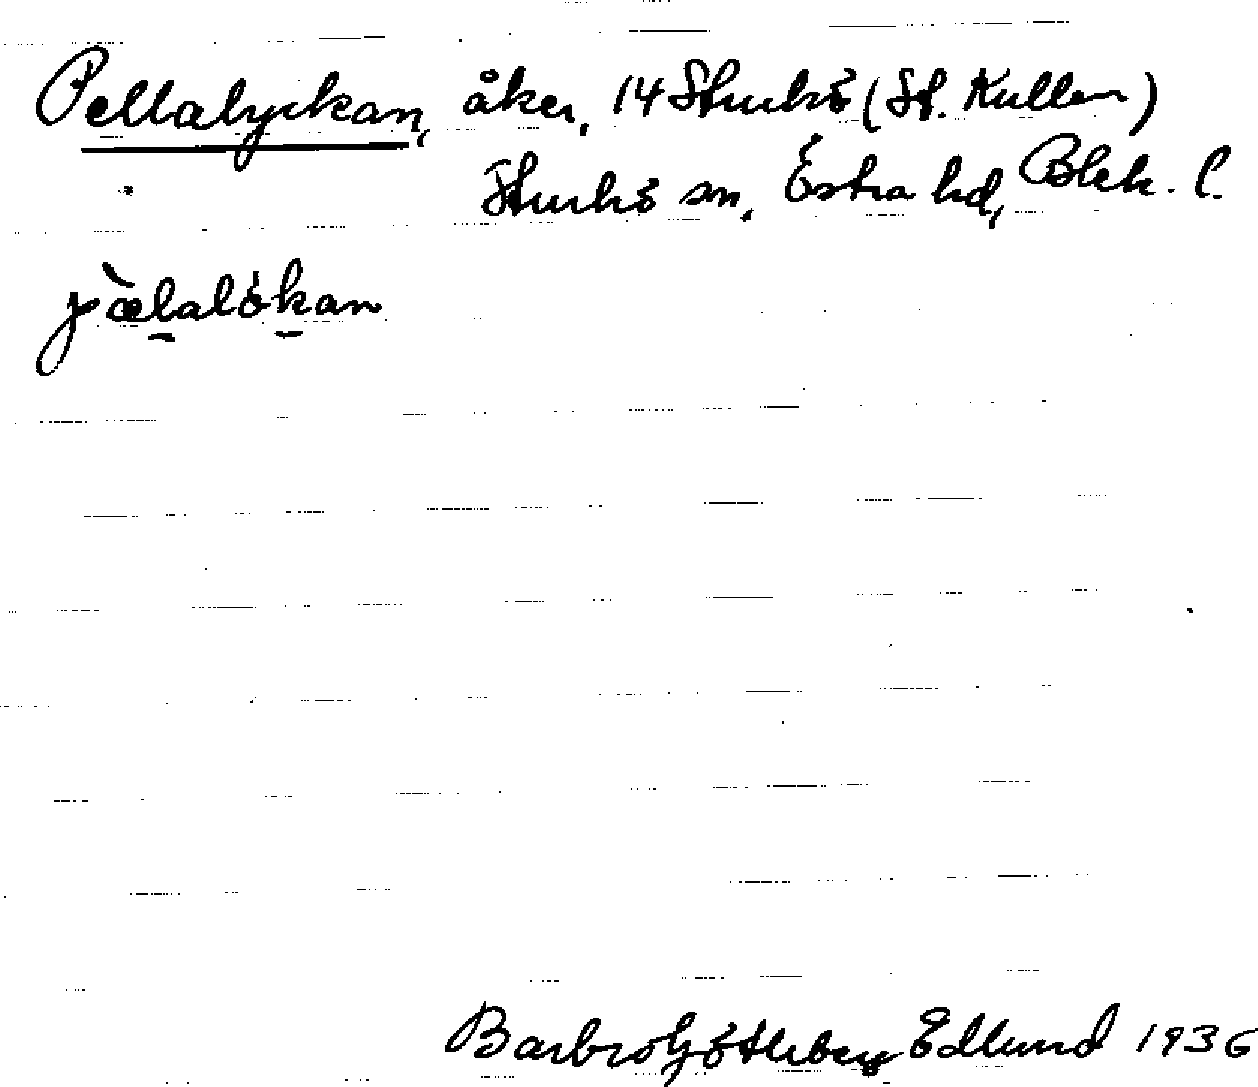 Pellalyckan, åker, 14 Sturkö (St. Kullen)
Sturkö sn, Östra hd, Blek. l.
pὰlalökan
Barbro Götheberg Edlund 1936